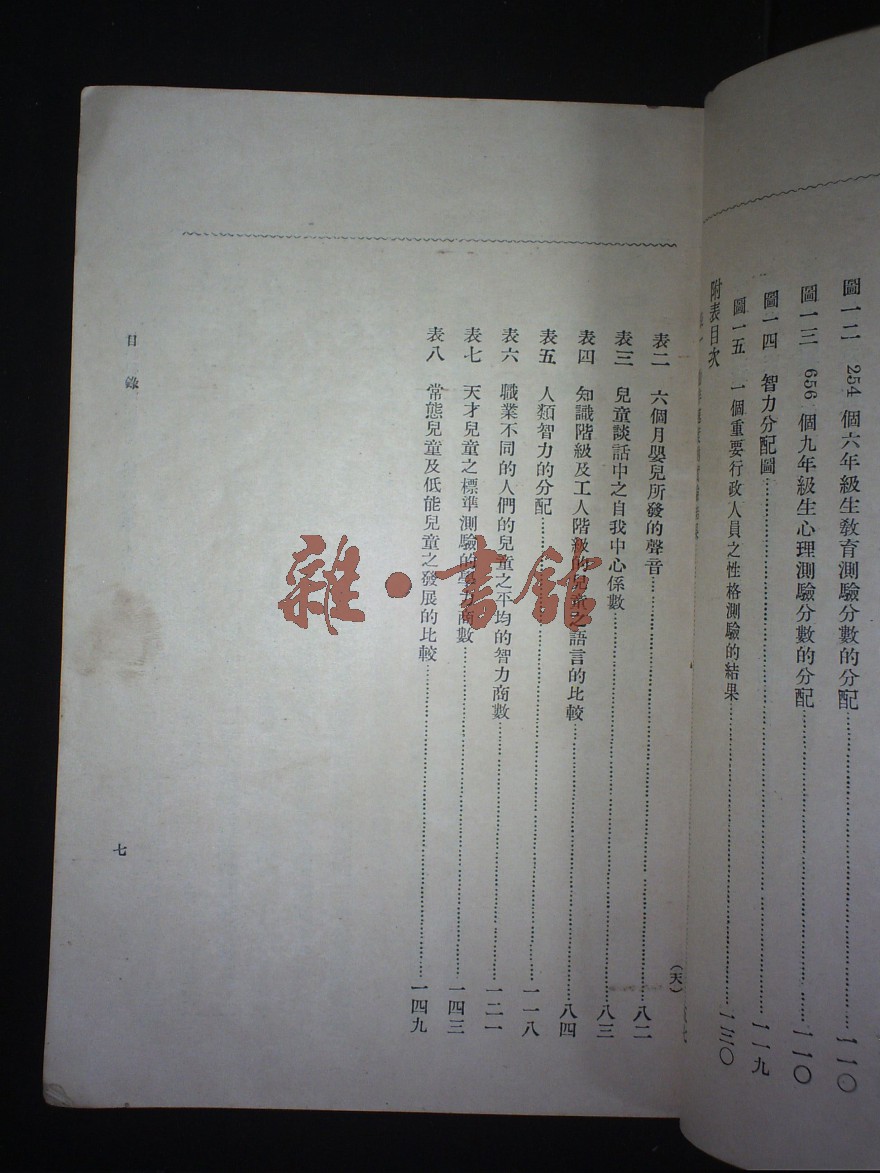 圖一二 254 個六年級生教育測驗分數的分配……一一〇
圖一三 656 個九年級生心理測驗分數的分配……一一〇
圖一四 智力分配圖……一一九
圖一五 一個重要行政人員之性格測驗的結果……一三〇
附表目次
表二 六個月嬰兒所發的聲音……八二
表三 兒童談話中之自我中心係數……八三
表四 知識階級及工人階級的兒童之語言的比較……八四
表五 人類智力的分配……一一八
表六 職業不同的人們的兒童之平均的智力商數……一二一
表七 天才兒童之標準測驗的學力商數……一四三
表八 常態兒童及低能兒童之發展的比較……一四九
(天)
目錄
七
雜·書館